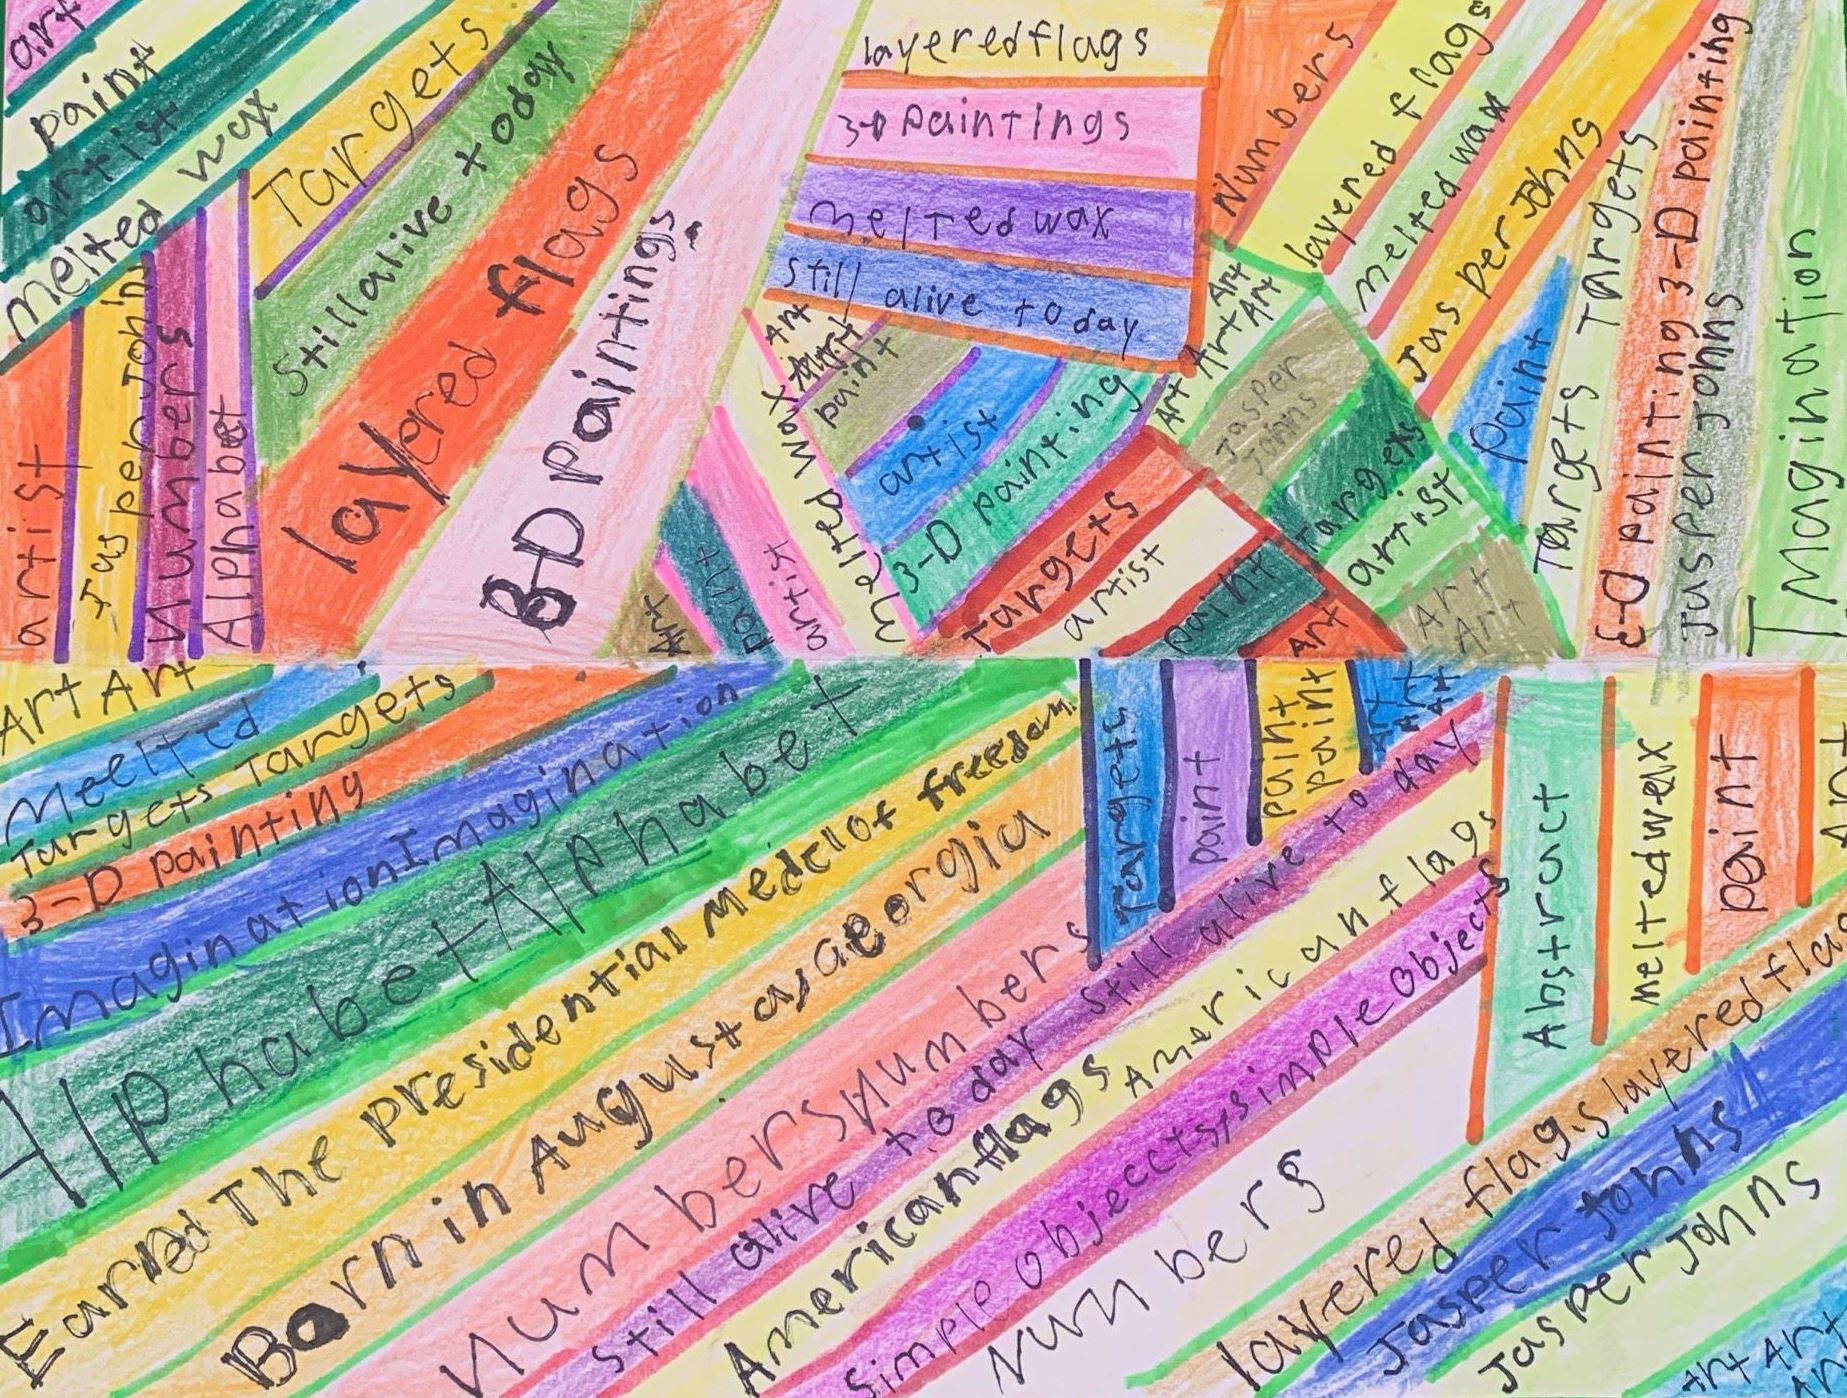 art
paint
artist
melted wax
Targets
Still alive today
layered flags
3-D paintings
artist
Jasper John
Numbers
Alphabet
layered flags
3-D paintings
melted wax
still alive today
Art
paint
artist
3-D painting
melted wax
artist
paint
Art
Targets
artist
paint
Art
Numbers
layered flags
melted wax
Jasper Johns
Art Art Art Art
Jasper
Johns
Targets
artist
Art
Art
paint
Targets Targets
3-D painting 3-D painting
Jasper Johns
Imagination
Art Art
Meelted
Targets Targets
3-D painting
Imagination Imagination
Alphabet Alphabet
Earned The presidential medellof freedom
Born in August as a Georgia
Numbers Numbers
Still alive today still alive to day
American flags American flags
Simple Objeccts, simple Objects
Numbers
Targets
paint
paint
paint
Art
Art
Art
Abstruct
melted wax
paint
Art
layered flags layered flags
Jasper Johns
Jasper Johns
Art Art